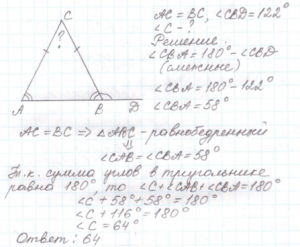 C
?
A
B
D
AC = BC, ∠CBD = 122°
∠C - ?
Решение.
∠CBA = 180° - ∠CBD
(смежные)
∠CBA = 180° - 122°
∠CBA = 58°
AC = BC => △ABC - равнобедренный
⇓
∠CAB = ∠CBA = 58°
Т.к. сумма углов в треугольнике
равна 180°, то ∠C + ∠CAB + ∠CBA = 180°
∠C + 58° + 58° = 180°
∠C + 116° = 180°
∠C = 64°
Ответ: 64